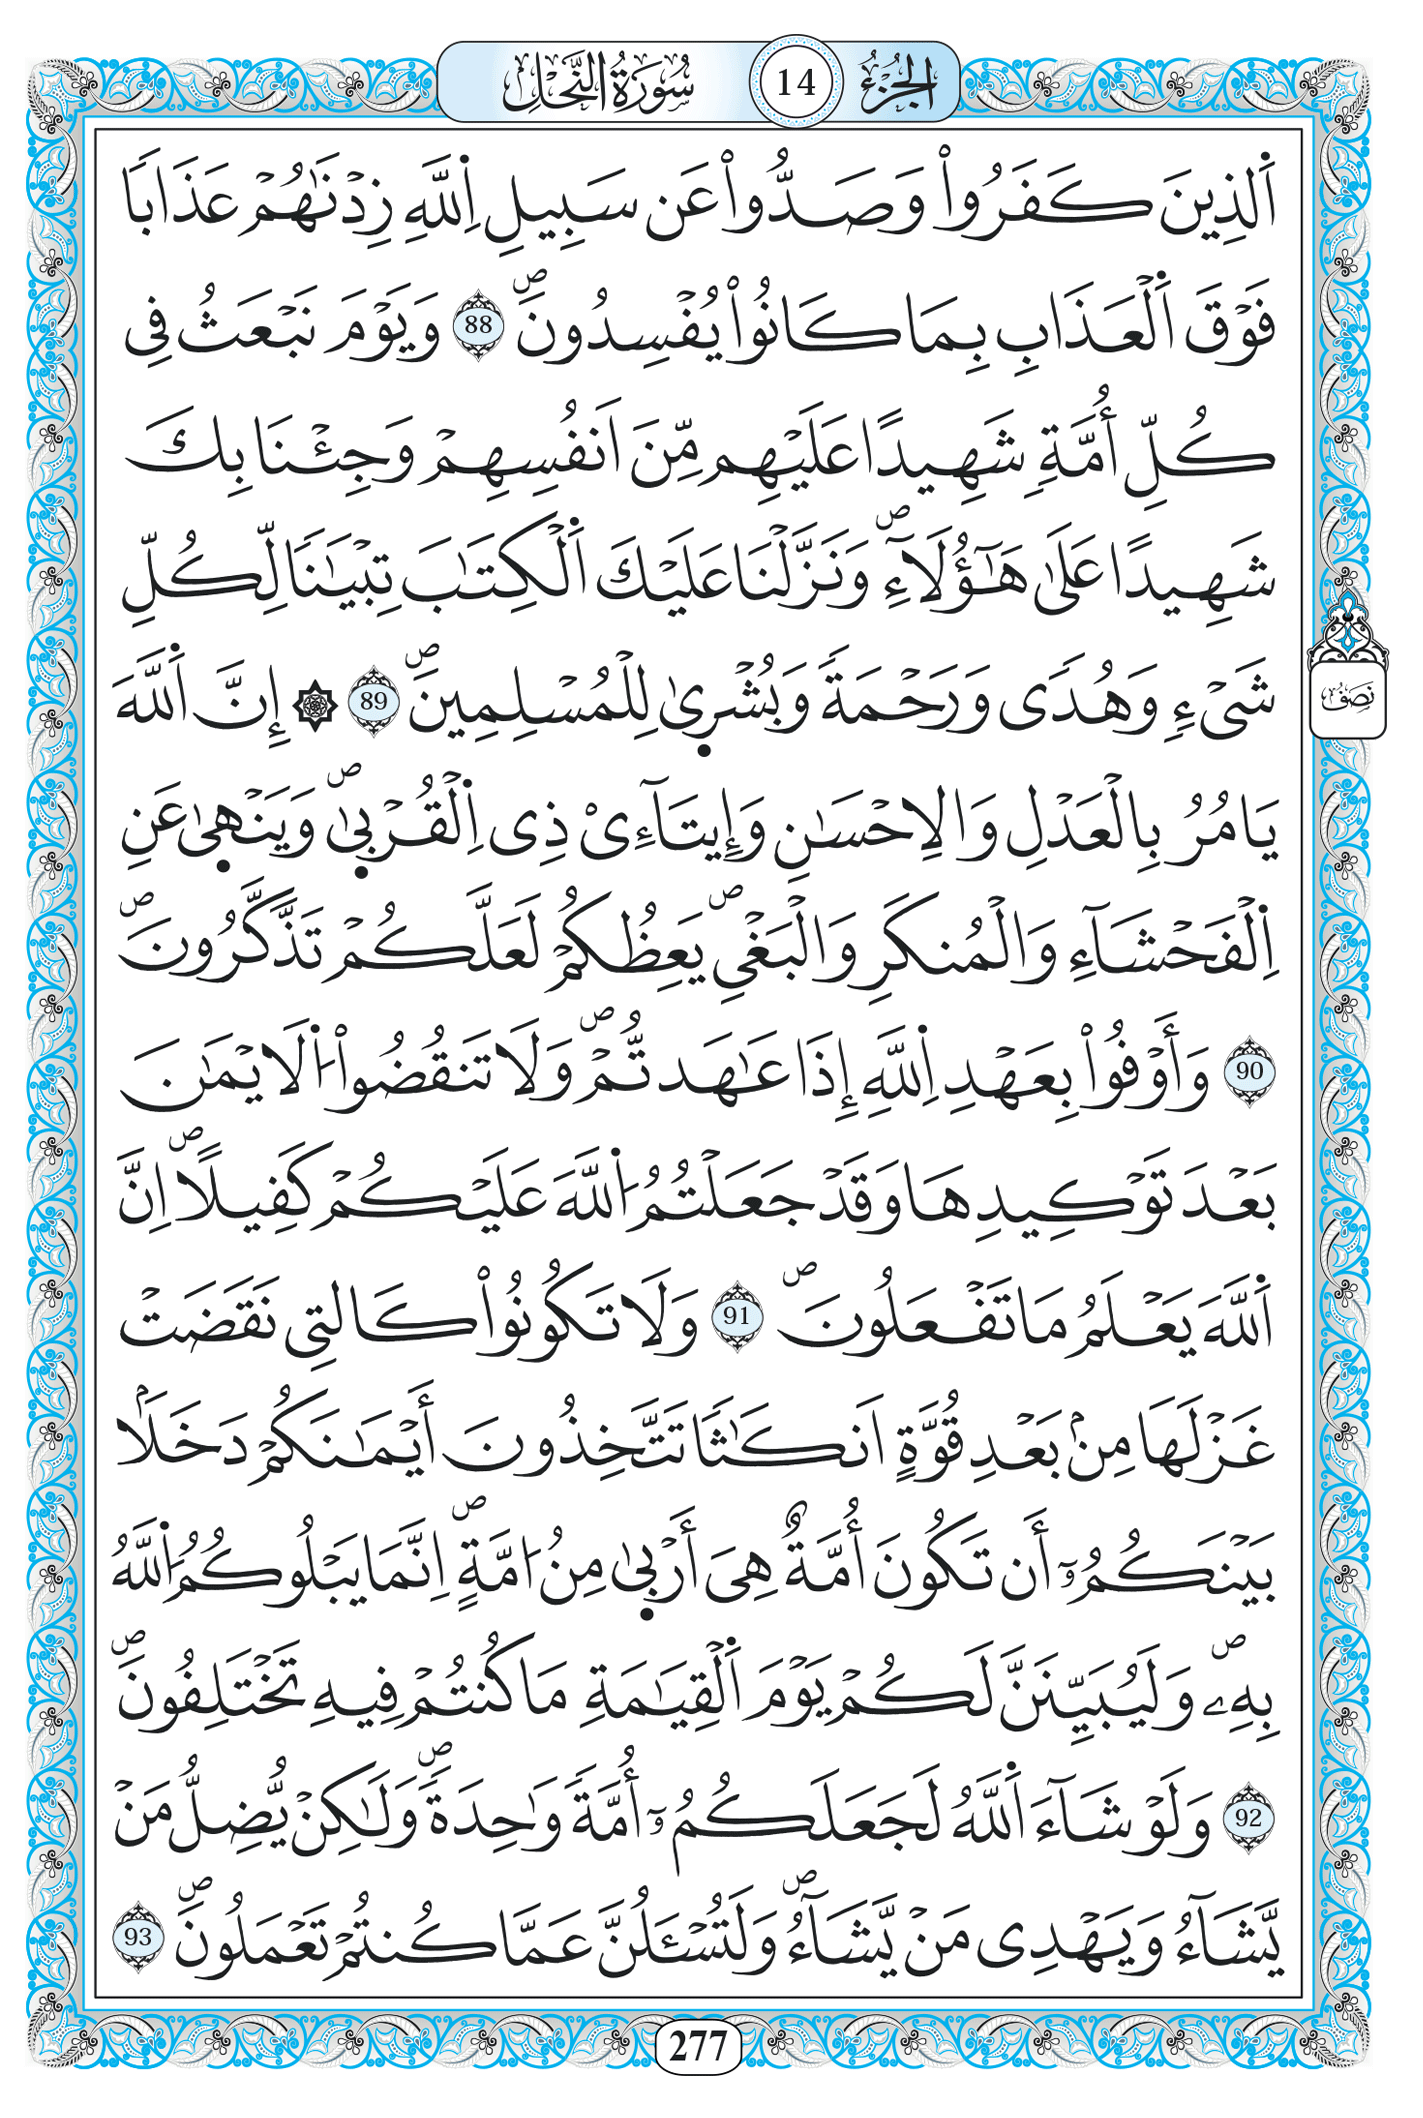 الجزء 14 سورة النحل
اَ۬لذِينَ كَفَرُواْ وَصَدُّواْ عَن سَبِيلِ اِ۬للَّهِ زِدْنَٰهُمْ عَذَاباٗ
فَوْقَ اَ۬لْعَذَابِ بِمَا كَانُواْ يُفْسِدُونَۖ 88 وَيَوْمَ نَبْعَثُ فِي
كُلِّ أُمَّةٖ شَهِيداً عَلَيْهِم مِّنَ اَنفُسِهِمْ وَجِئْنَا بِكَ
شَهِيداً عَلَىٰ هَٰٓؤُلَآءِۖ وَنَزَّلْنَا عَلَيْكَ اَ۬لْكِتَٰبَ تِبْيَٰناٗ لِّكُلِّ
شَےْءٖ وَهُدىٗ وَرَحْمَةٗ وَبُشْر۪ىٰ لِلْمُسْلِمِينَۖ 89 ۞ إِنَّ اَ۬للَّهَ
يَامُرُ بِالْعَدْلِ وَالِاحْسَٰنِ وَإِيتَآءِےْ ذِي اِ۬لْقُرْب۪ىٰۖ وَيَنْه۪ىٰ عَنِ
اِ۬لْفَحْشَآءِ وَالْمُنكَرِ وَالْبَغْيِۖ يَعِظُكُمْ لَعَلَّكُمْ تَذَّكَّرُونَۖ
90 وَأَوْفُواْ بِعَهْدِ اِ۬للَّهِ إِذَا عَٰهَدتُّمْۖ وَلَا تَنقُضُواْ اُ۬لَايْمَٰنَ
بَعْدَ تَوْكِيدِهَا وَقَدْ جَعَلْتُمُ اُ۬للَّهَ عَلَيْكُمْ كَفِيلاًۖ اِنَّ
اَ۬للَّهَ يَعْلَمُ مَا تَفْعَلُونَۖ 91 وَلَا تَكُونُواْ كَالتِي نَقَضَتْ
غَزْلَهَا مِنۢ بَعْدِ قُوَّةٍ اَنكَٰثاٗ تَتَّخِذُونَ أَيْمَٰنَكُمْ دَخَلاَۢ
بَيْنَكُمُۥٓ أَن تَكُونَ أُمَّةٌ هِيَ أَرْب۪ىٰ مِنُ امَّةٍۖ اِنَّمَا يَبْلُوكُمُ اُ۬للَّهُ
بِهِۦۖ وَلَيُبَيِّنَنَّ لَكُمْ يَوْمَ اَ۬لْقِيَٰمَةِ مَا كُنتُمْ فِيهِ تَخْتَلِفُونَۖ
92 وَلَوْ شَآءَ اَ۬للَّهُ لَجَعَلَكُمُۥٓ أُمَّةٗ وَٰحِدَةٗۖ وَلَٰكِنْ يُّضِلُّ مَنْ
يَّشَآءُ وَيَهْدِي مَنْ يَّشَآءُۖ وَلَتُسْـَٔلُنَّ عَمَّا كُنتُمْ تَعْمَلُونَۖ 93
نصف
277